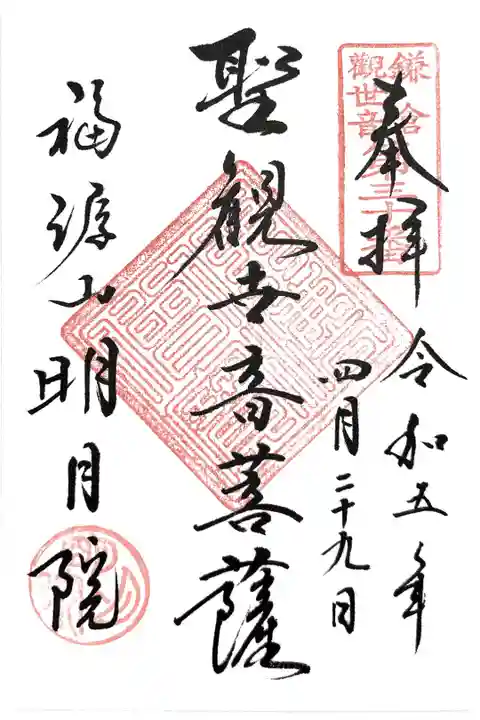 奉拝
令和五年
四月二十九日
聖観世音菩薩
福源山明月院
鎌倉
観世音第三十番